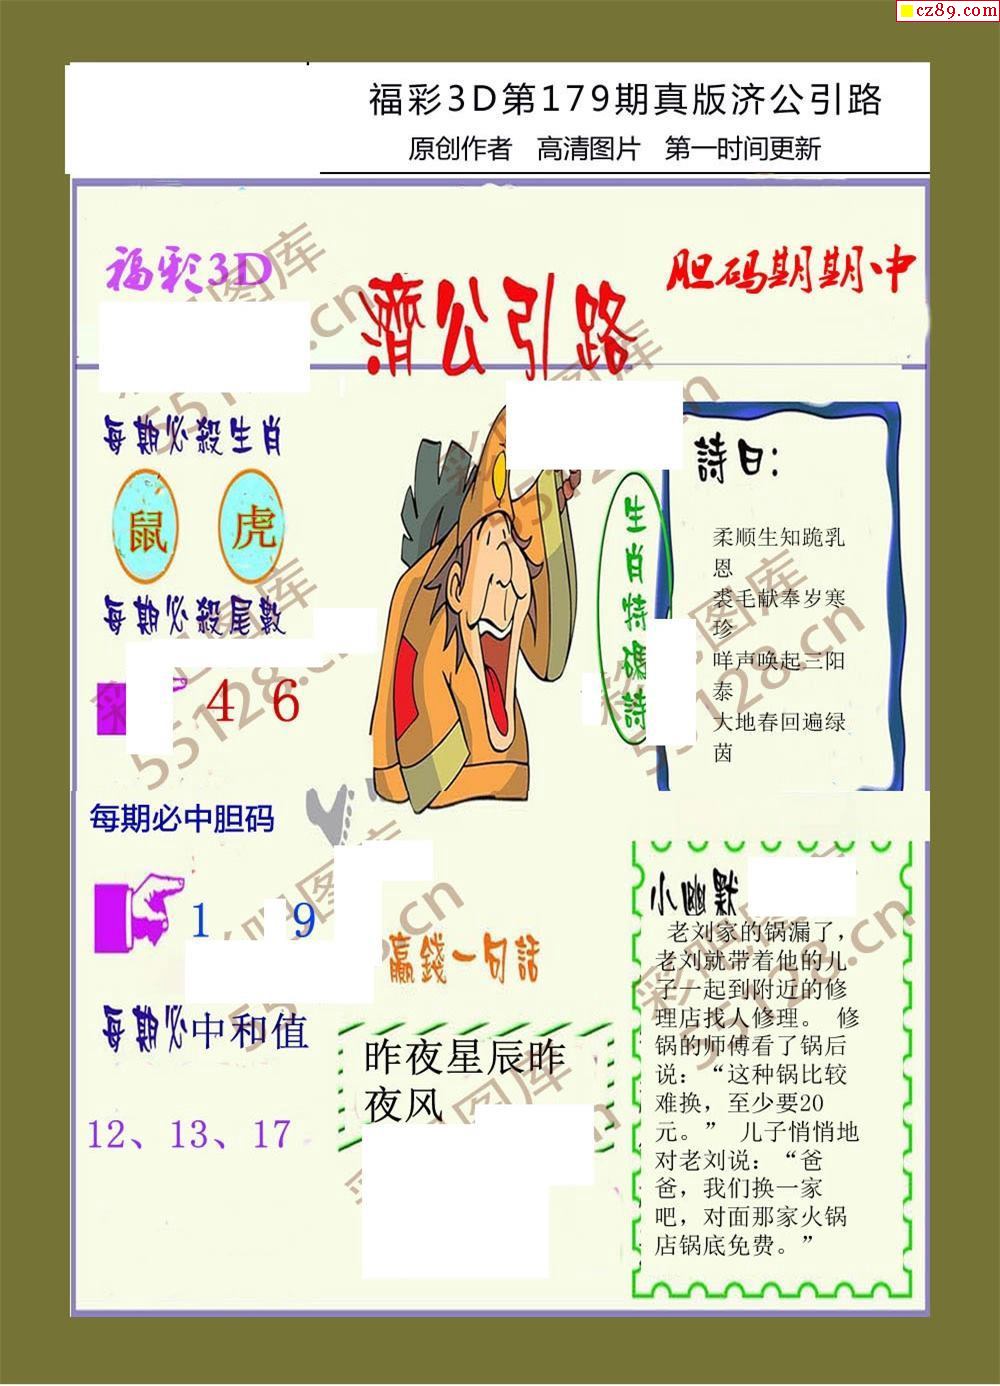 cz89.com
福彩3D第179期真版济公引路
原创作者 高清图片 第一时间更新
福彩3D
濟公引路
胆码期期中
每期必殺生肖
鼠 虎
每期必殺尾數
4 6
每期必中胆码
1 9
每期必中和值
12、13、17
生肖特碼詩
詩曰：
柔顺生知跪乳
恩
裘毛献奉岁寒
珍
咩声唤起三阳
泰
大地春回遍绿
茵
赢錢一句話
昨夜星辰昨
夜风
小幽默
老刘家的锅漏了，
老刘就带着他的儿
子一起到附近的修
理店找人修理。 修
锅的师傅看了锅后
说：“这种锅比较
难换，至少要20
元。” 儿子悄悄地
对老刘说：“爸
爸，我们换一家
吧，对面那家火锅
店锅底免费。”